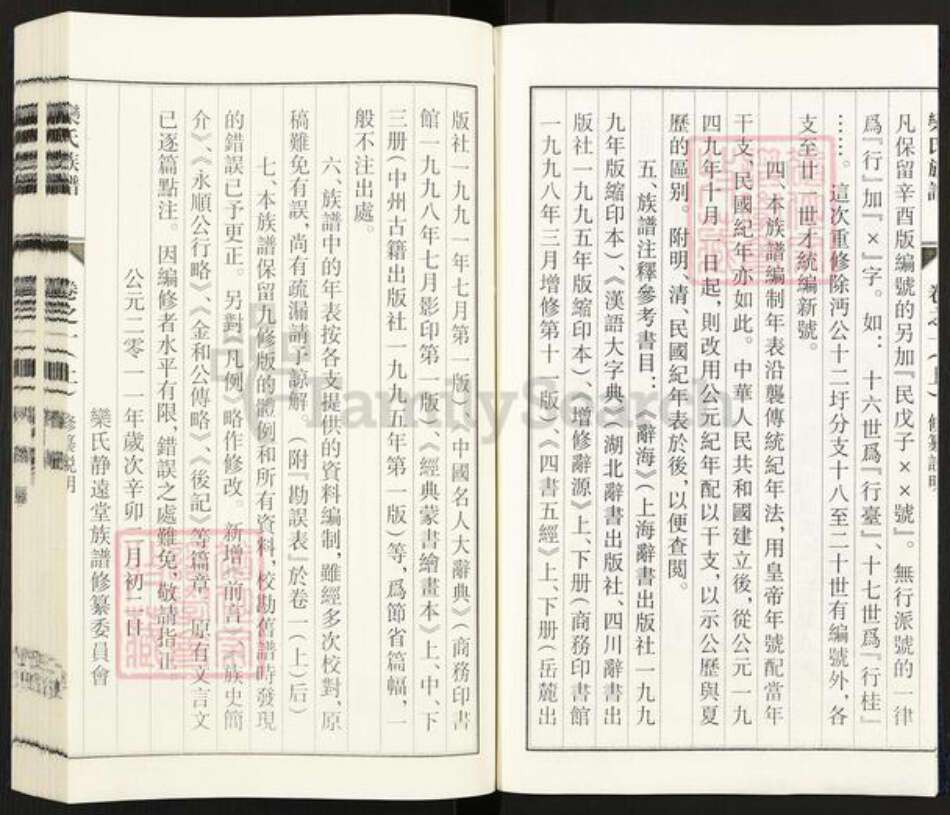 凡保留辛酉版編號的另加『民戊子××號』。無行派號的一律
爲『行』加『×』字。如：十六世爲『行臺』、十七世爲『行桂』
……。這次重修除沔公十二圩分支十八至二十世有編號外，各
支至廿一世才統編新號。
四、本族譜編制年表沿襲傳統紀年法，用皇帝年號配當年
干支、民國紀年亦如此。中華人民共和國建立後，從公元一九
四九年十月一日起，則改用公元紀年配以干支，以示公歷與夏
歷的區别。附明、清、民國紀年表於後，以便查閲。
五、族譜注釋參考書目：《辭海》（上海辭書出版社一九九
九年版縮印本）、《漢語大字典》（湖北辭書出版社、四川辭書出
版社一九九五年版縮印本）、《增修辭源》上、下册（商務印書館
一九九八年三月增修第十一版）、《四書五經》上、下册（岳麓出
版社一九九一年七月第一版）、《中國名人大辭典》（商務印書
館一九九八年七月影印第一版）、《經典蒙書繪畫本》上、中、下
三册（中州古籍出版社一九九五年第一版）等，爲節省篇幅，一
般不注出處。
六、族譜中的年表按各支提供的資料編制，雖經多次校對，原
稿難免有誤，尚有疏漏請予諒解（附『勘誤表』於卷一（上）后）
七、本族譜保留九修版的體例和所有資料，校勘舊譜時發現
的錯誤已予更正。另對《凡例》略作修改。新增《前言》、《族史簡
介》、《永順公行略》、《金和公傳略》、《後記》等篇章。原有文言文
已逐篇點注。因編修者水平有限，錯誤之處難免，敬請指正
公元二零一一年歲次辛卯二月初二日
欒氏静遠堂族譜修纂委員會
欒氏族譜
卷之一（上）
修纂説明
FamilySearch